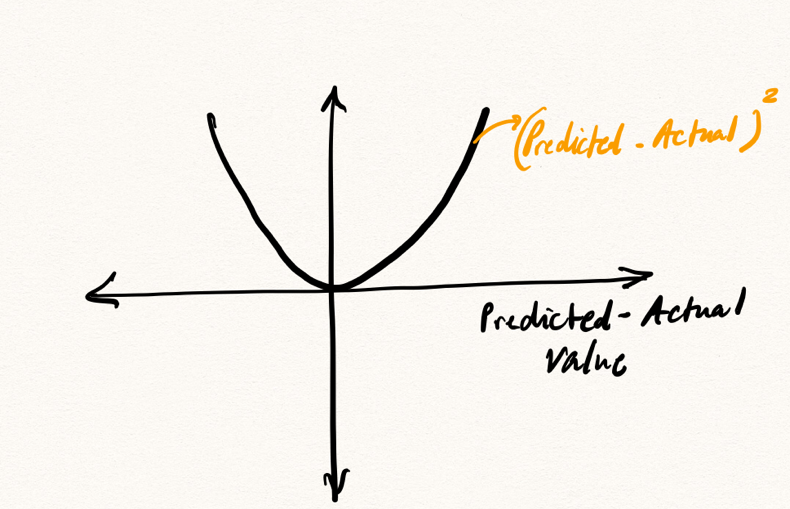 (Predicted - Actual)²
Predicted - Actual
Value